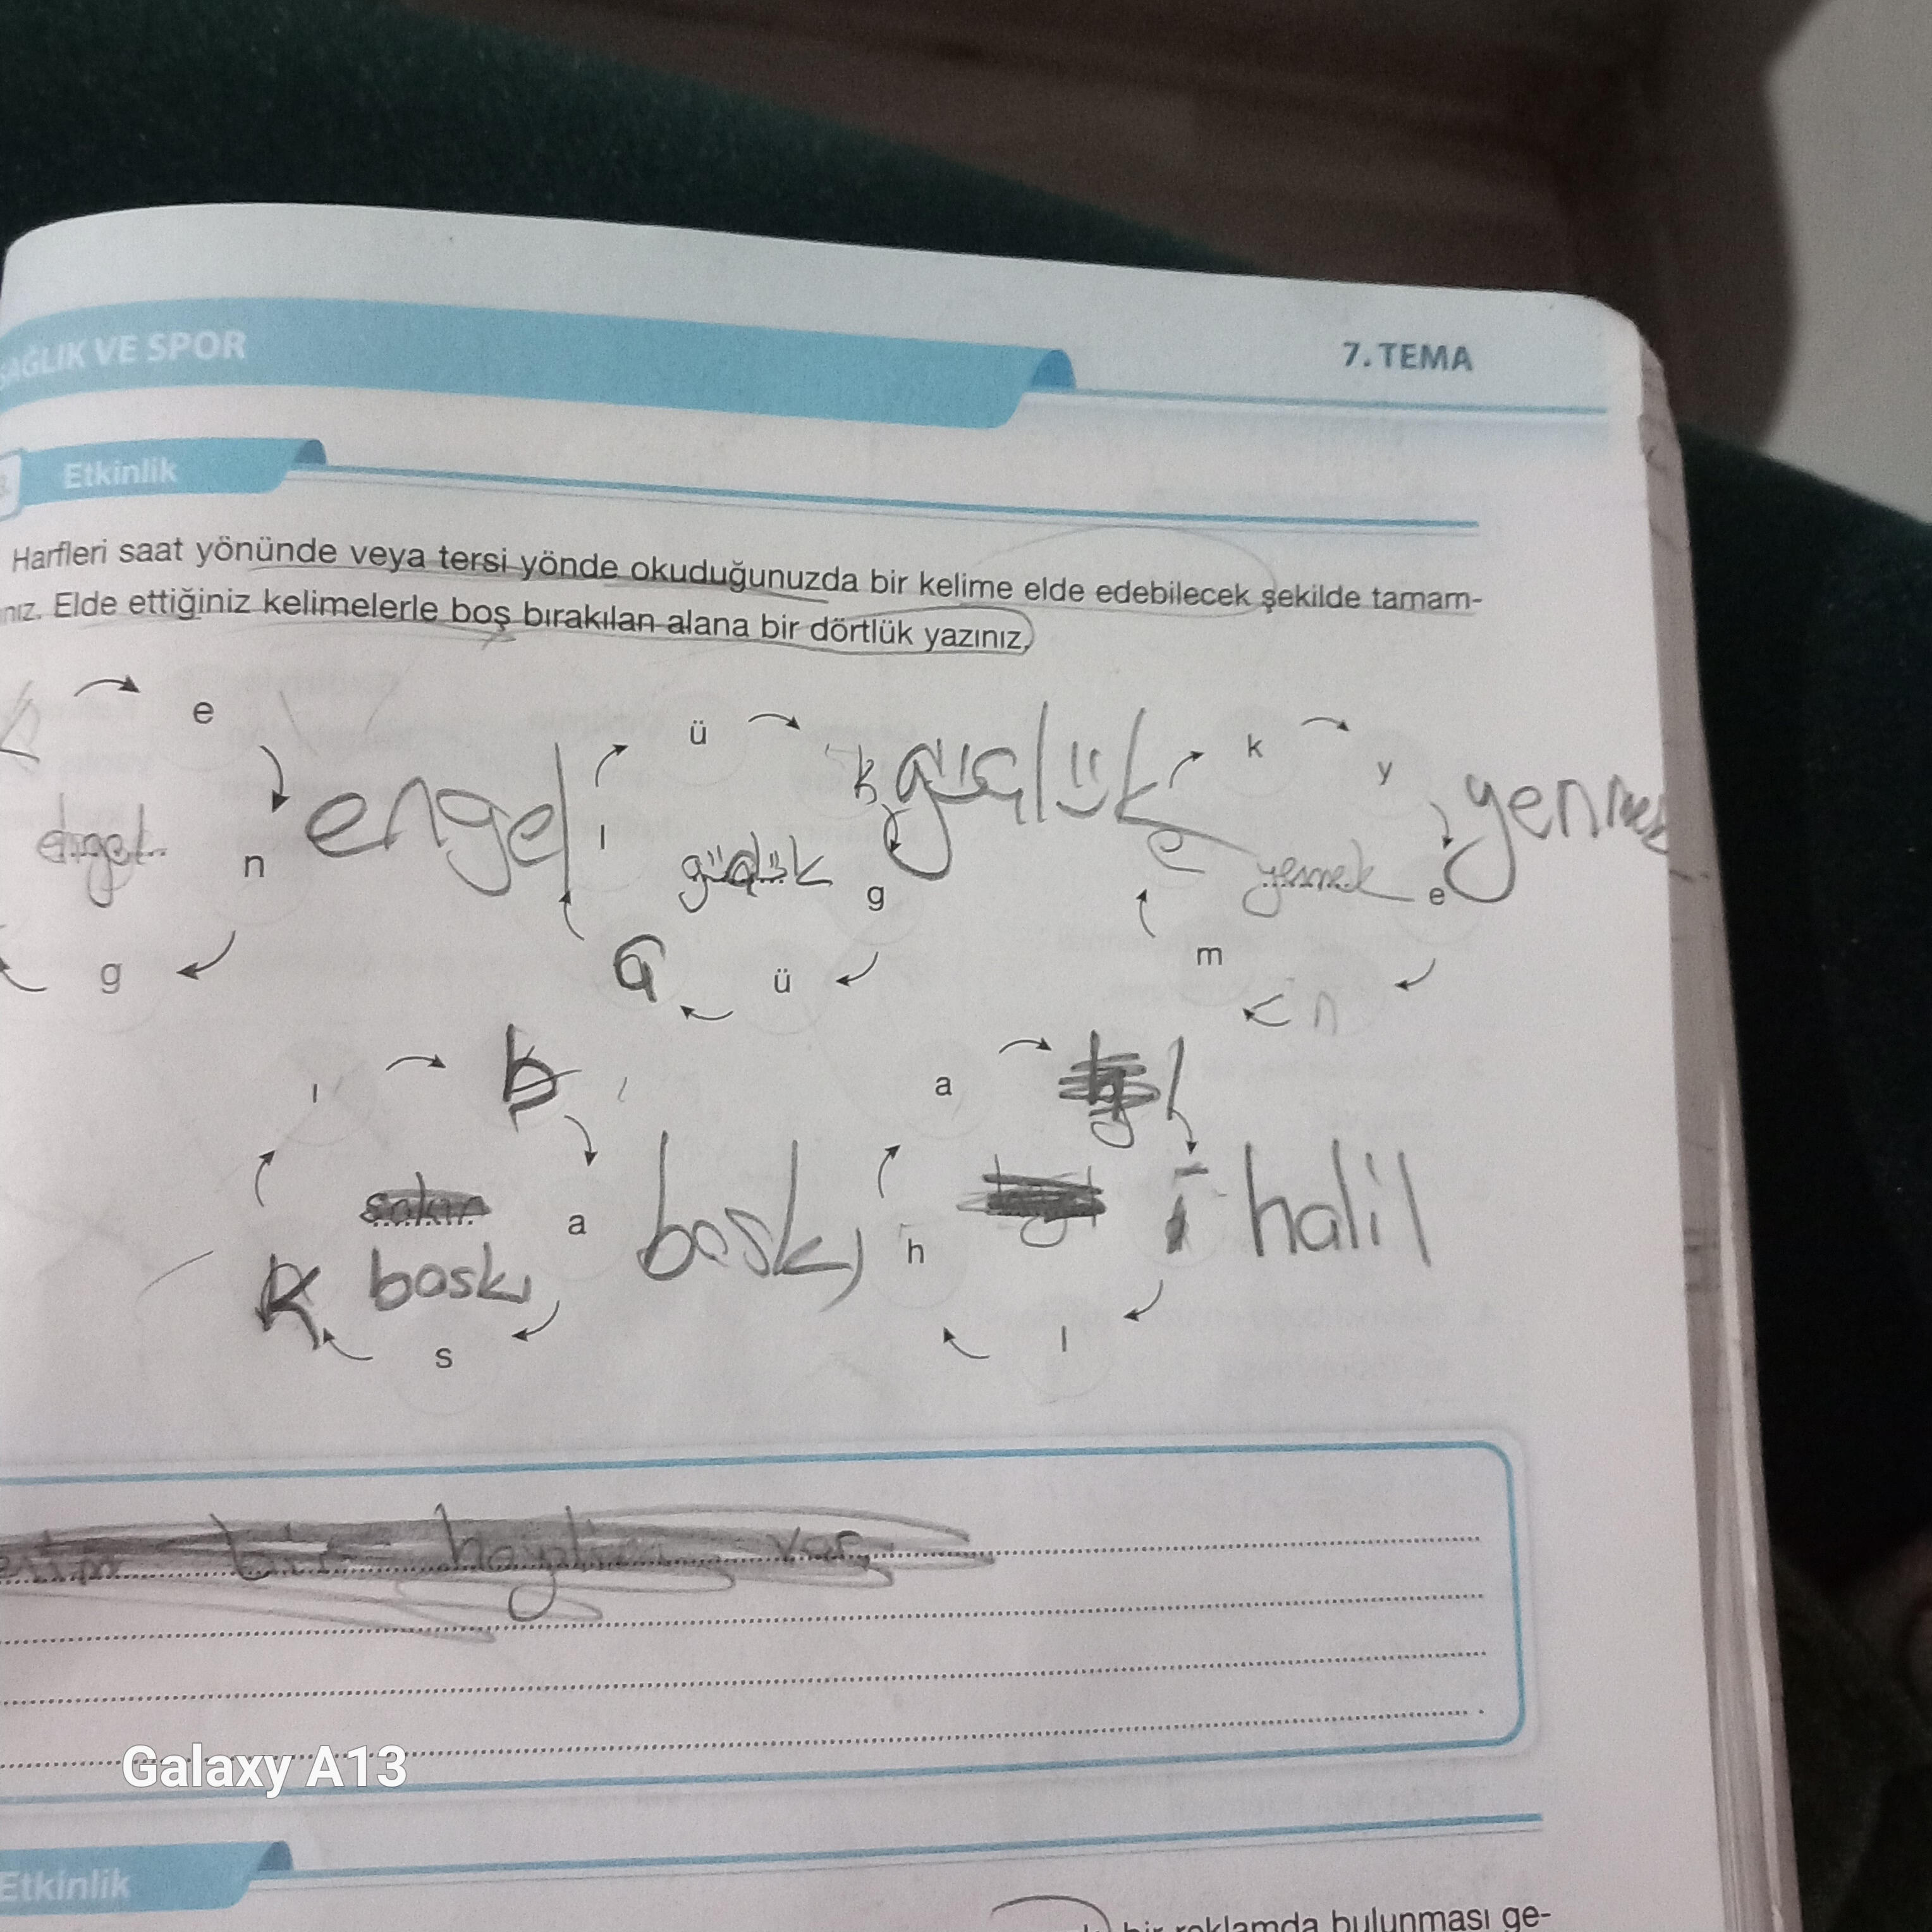 SAĞLIK VE SPOR
7. TEMA
Etkinlik
Harfleri saat yönünde veya tersi yönde okuduğunuzda bir kelime elde edebilecek şekilde tamam-
nız. Elde ettiğiniz kelimelerle boş bırakılan alana bir dörtlük yazınız.
e ü k y
engel güçlük yenmek
engel n l güçlük g e yenmek e
g ü m n
ı b a l
a baskı h i halil
k baskı
s l
bir var
Galaxy A13
Etkinlik
bir reklamda bulunması ge-